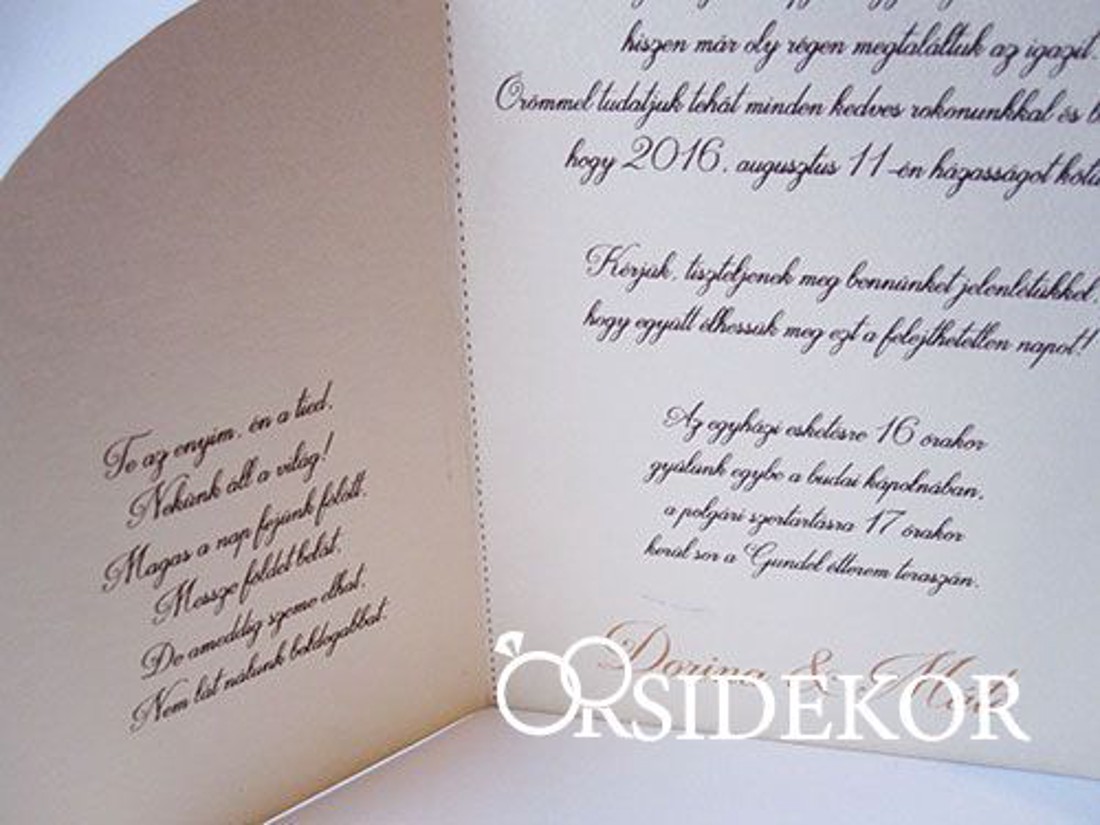 Te az enyim, én a tied,
Nekünk áll a világ!
Magas a nap fejünk fölött,
Messze földet belát,
De ameddig szeme elhat,
Nem lát nálunk boldogabbat.
hiszen már oly régen megtaláltuk az igazit.
Örömmel tudatjuk tehát minden kedves rokonunkkal és
hogy 2016. augusztus 11-én házasságot
Kérjük, tiszteljenek meg bennünket jelenlétükkel,
hogy együtt élhessük meg ezt a felejthetetlen napot!
Az egyházi esketésre 16 órakor
gyűlünk egybe a budai kápolnában,
a polgári szertartásra 17 órakor
kerül sor a Gundel étterem teraszán.
Dorina &
ORSIDEKOR